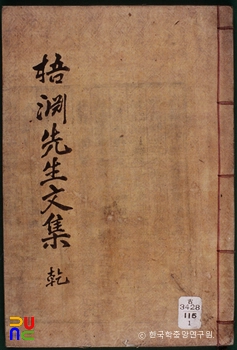 梧淵先生文集 乾
3428
116
1
© 한국학중앙연구원